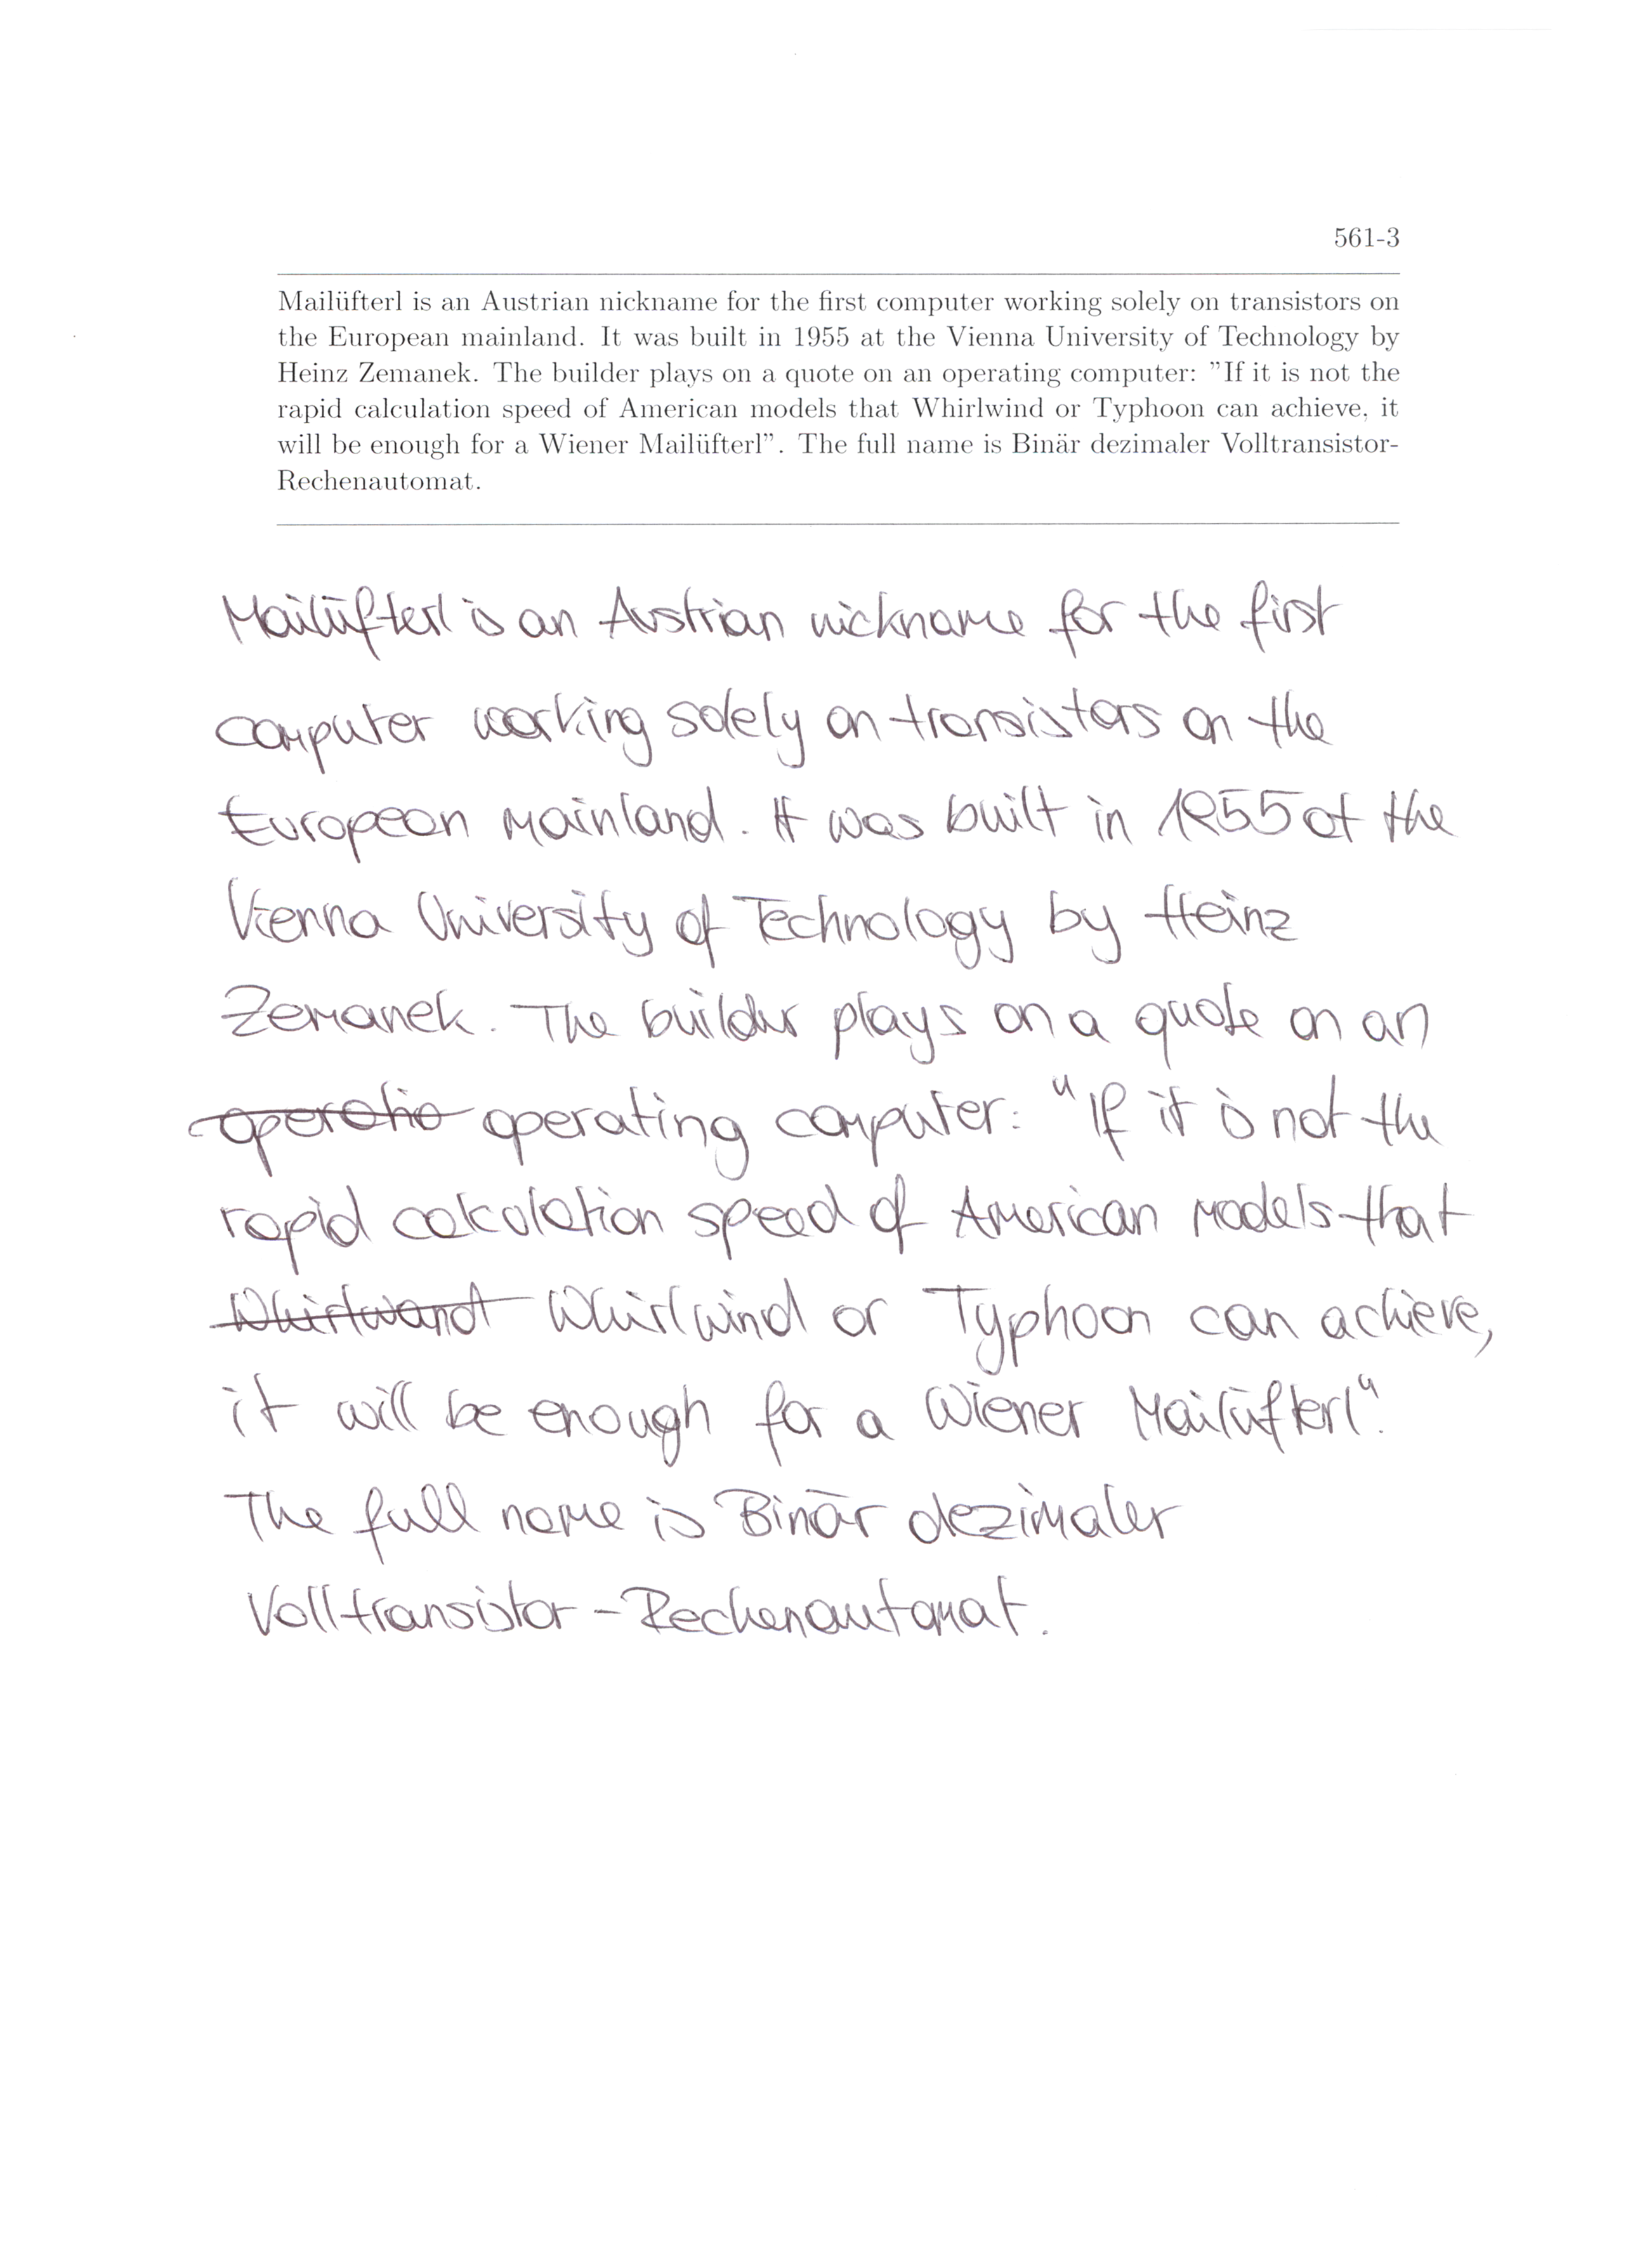 561-3
Mailüfterl is an Austrian nickname for the first computer working solely on transistors on
the European mainland. It was built in 1955 at the Vienna University of Technology by
Heinz Zemanek. The builder plays on a quote on an operating computer: ”If it is not the
rapid calculation speed of American models that Whirlwind or Typhoon can achieve, it
will be enough for a Wiener Mailüfterl”. The full name is Binär dezimaler Volltransistor-
Rechenautomat.
Mailüfterl is an Austrian nickname for the first
computer working solely on transistors on the
European mainland. It was built in 1955 at the
Vienna University of Technology by Heinz
Zemanek. The builder plays on a quote on an
operatio operating computer: "If it is not the
rapid calculation speed of American models that
Whirlwand Whirlwind or Typhoon can achieve,
it will be enough for a Wiener Mailüfterl".
The full name is Binär dezimaler
Volltransistor-Rechenautomat.